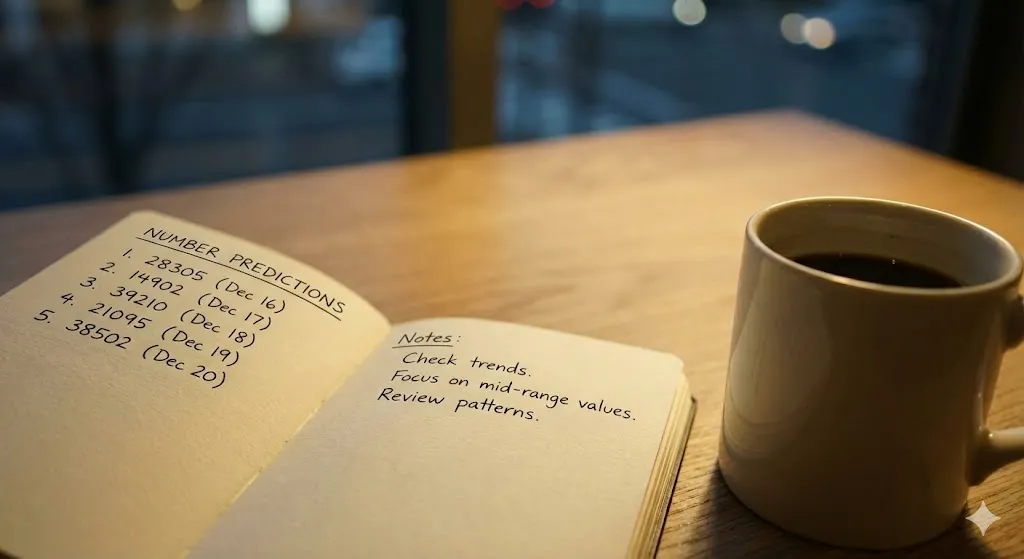 NUMBER PREDICTIONS
1. 28305 (Dec 16)
2. 14902 (Dec 17)
3. 39210 (Dec 18)
4. 21095 (Dec 19)
5. 38502 (Dec 20)
Notes:
Check trends.
Focus on mid-range values.
Review patterns.